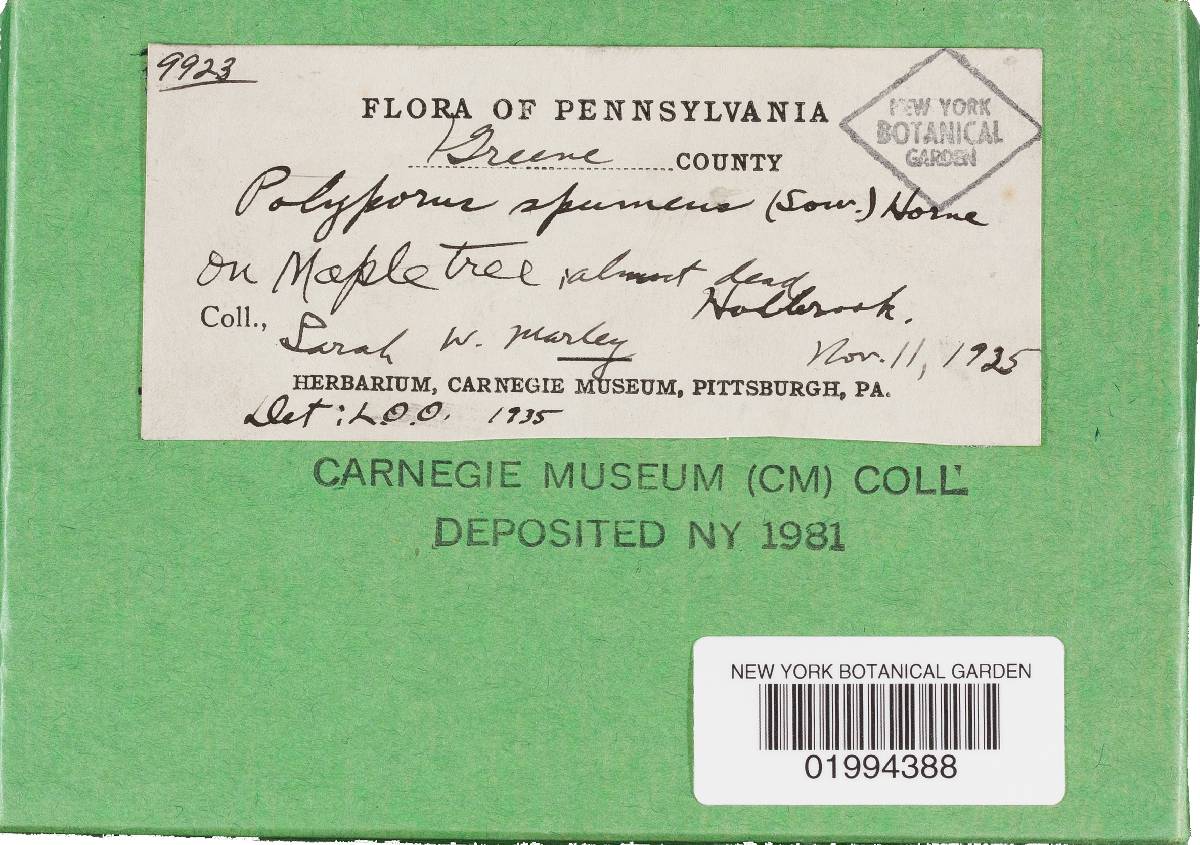 9923
NEW YORK
BOTANICAL
GARDEN
FLORA OF PENNSYLVANIA
Greene COUNTY
Polyporus spumeus (Sow.) Horne
on Maple tree, almost dead
Holbrook.
Coll., Sarah W. Marley Nov. 11, 1935
HERBARIUM, CARNEGIE MUSEUM, PITTSBURGH, PA.
Det: L.O.O. 1935
CARNEGIE MUSEUM (CM) COLL.
DEPOSITED NY 1981
NEW YORK BOTANICAL GARDEN
01994388